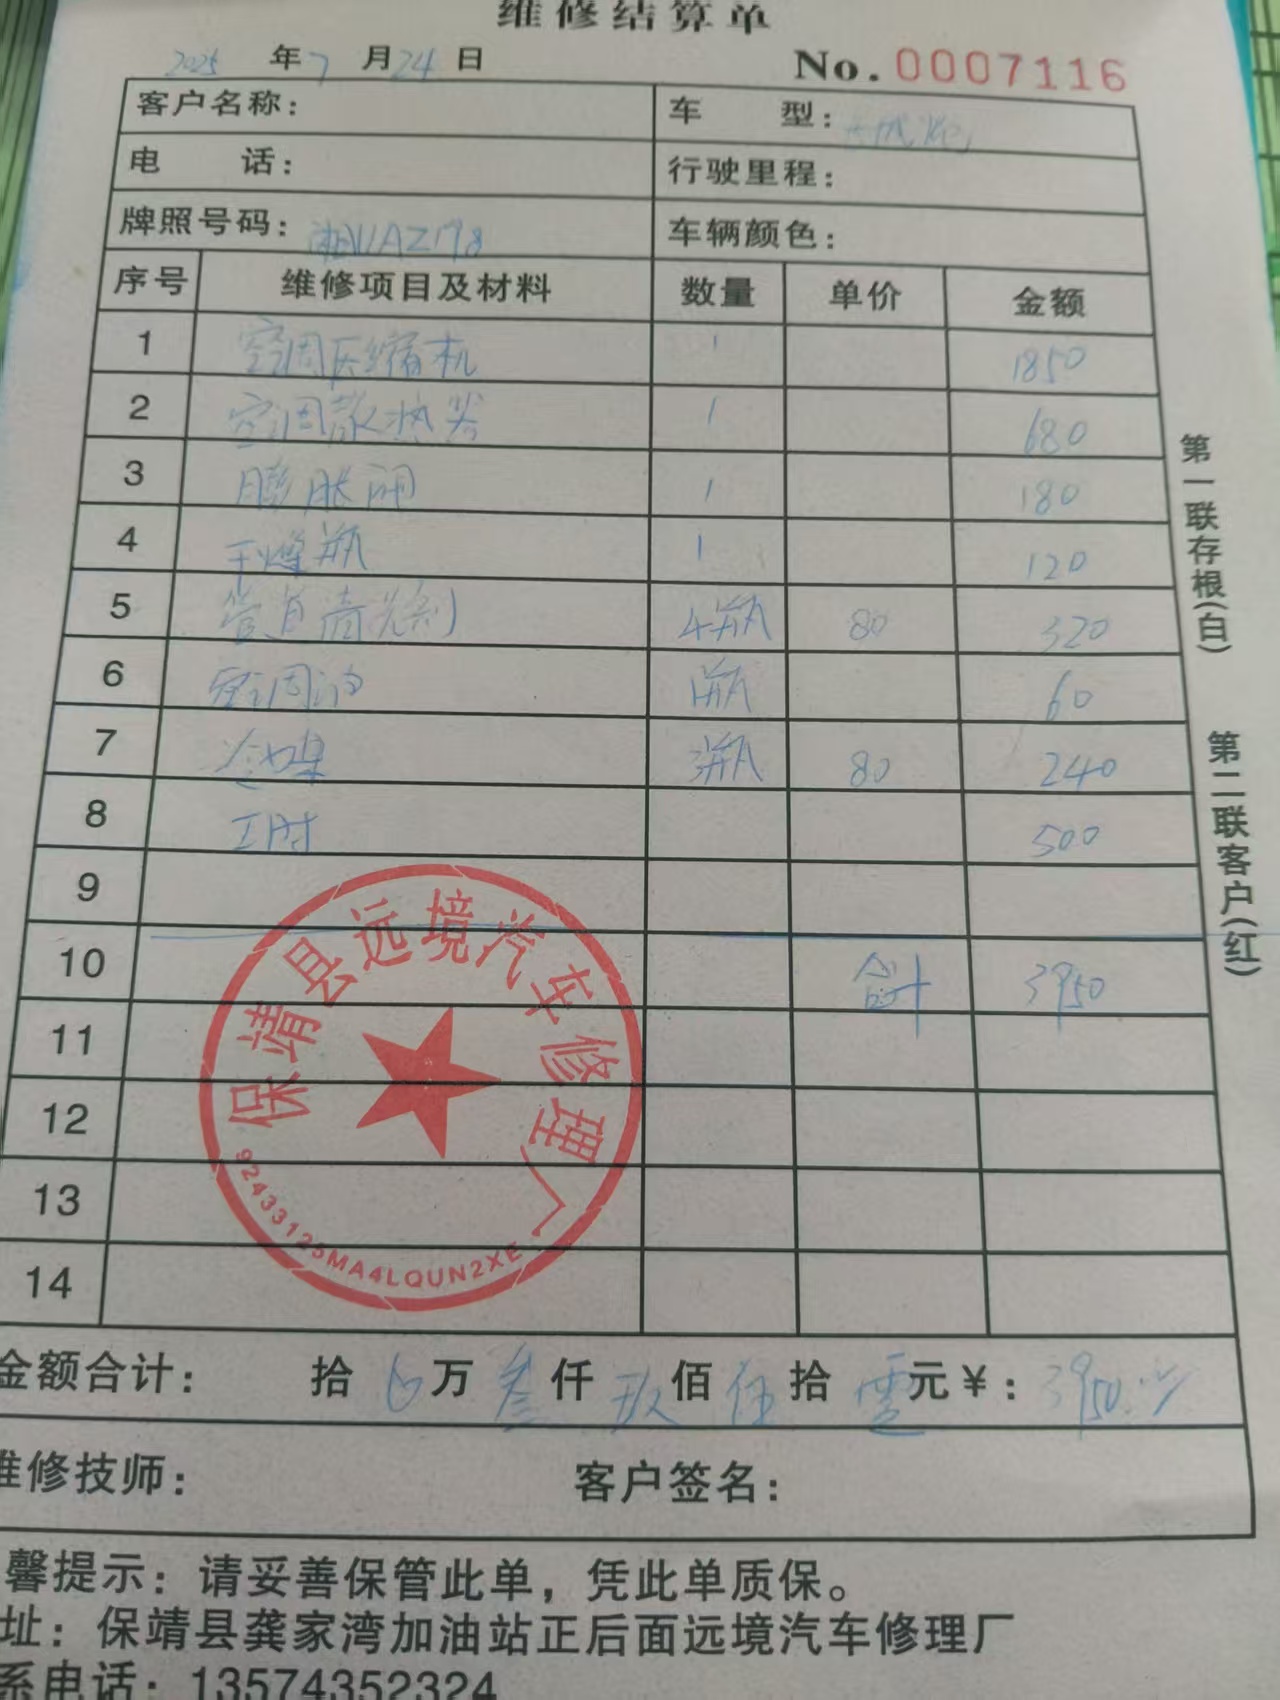 维修结算单
2025年7月24日 No.0007116
客户名称： 车 型：长城炮
电 话： 行驶里程：
牌照号码：湘UAZ198 车辆颜色：
序号 维修项目及材料 数量 单价 金额
1 空调压缩机 1 1850
2 空调散热器 1 680
3 膨胀阀 1 180
4 干燥瓶 1 120
5 管道清洗剂 4瓶 80 320
6 空调油 1瓶 60
7 冷媒 3瓶 80 240
8 工时 500
9
10 合计 3950
11
12
13
14
保靖县远境汽车修理厂
92433125MA4LQUN2XE
金额合计： 拾 万叁仟玖佰伍拾零元¥：3950.00
维修技师： 客户签名：
馨提示：请妥善保管此单，凭此单质保。
址：保靖县龚家湾加油站正后面远境汽车修理厂
系电话：13574352324
第一联存根(白) 第二联客户(红)